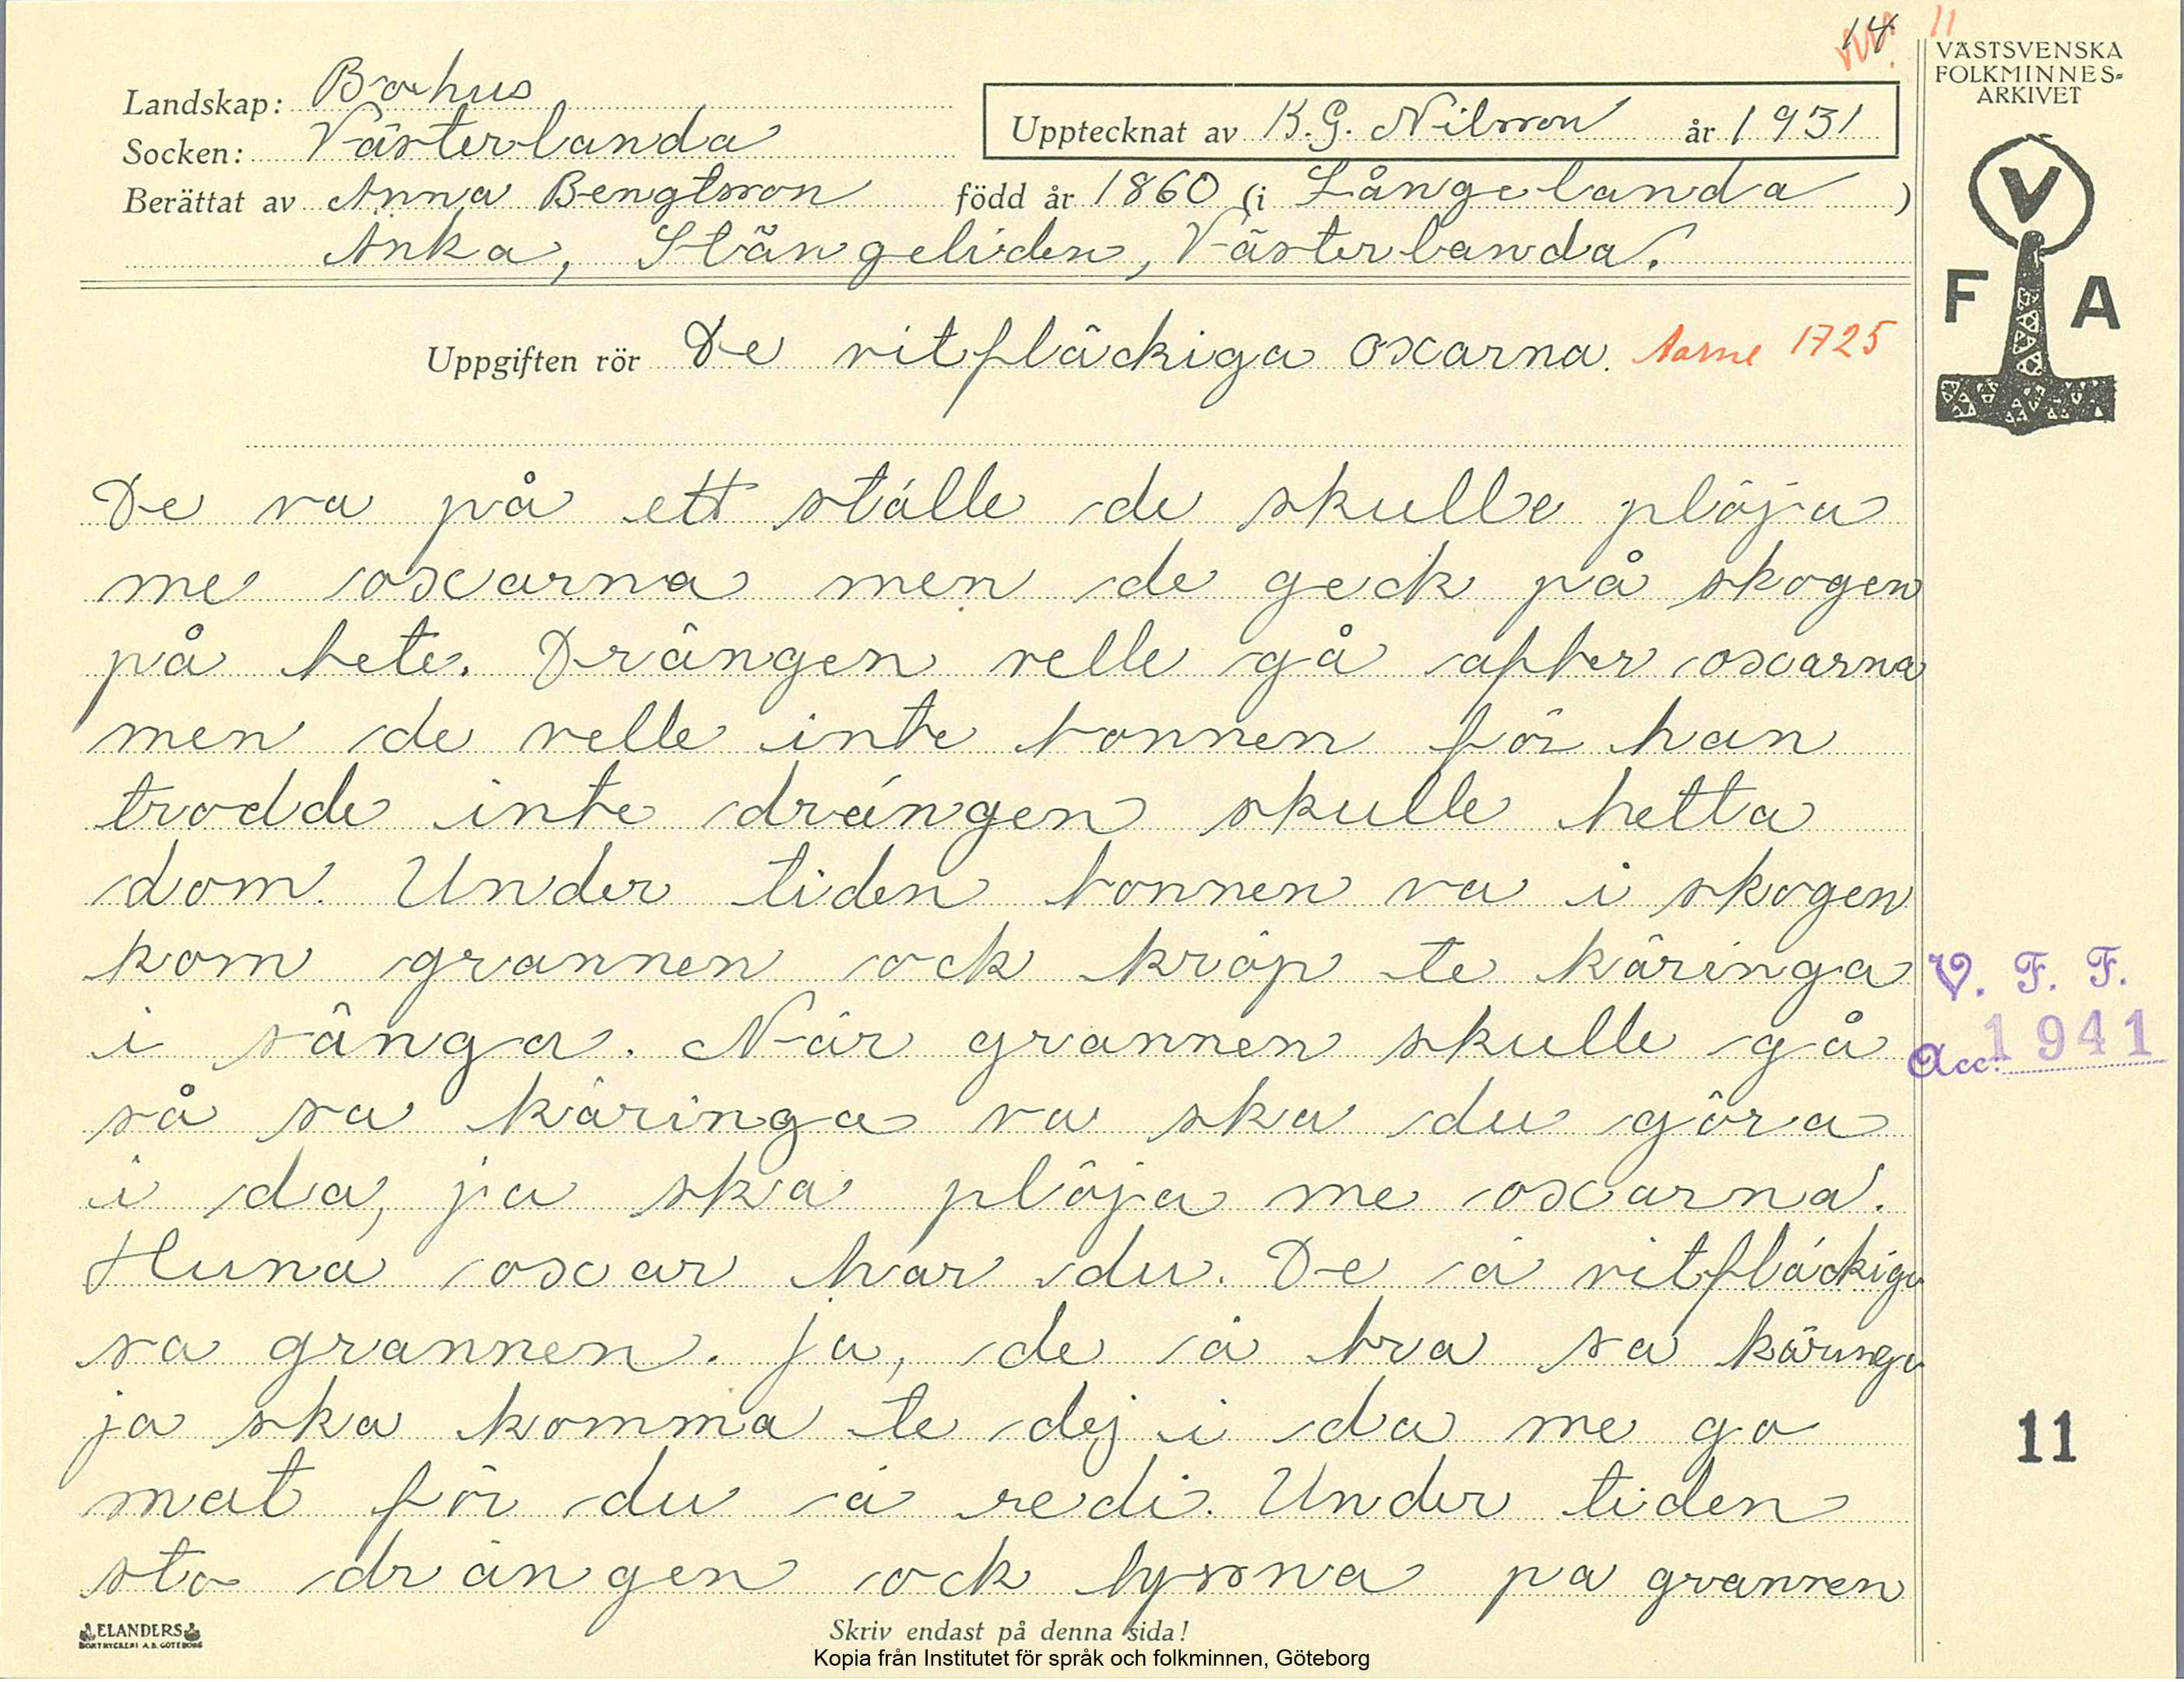 14 11
VÄSTSVENSKA
FOLKMINNES-
ARKIVET
Landskap: Bohus
Socken: Västerlanda
Upptecknat av K.G. Nilsson år 1931
Berättat av Anna Bengtsson född år 1860 (i Långelanda)
Änka, Stängeliden, Västerlanda.
V
F A
Uppgiften rör De vitfläckiga oxarna. Aarne 1725
De va på ett ställe de skulle plöja
me oxarna men de geck på skogen
på bete. Drängen velle gå après oxarna
men de velle inte bonnen för han
trodde inte drängen skulle hetta
dom. Under tiden bonnen va i skogen
kom grannen ock kröp te käringa
i sänga. När grannen skulle gå
så sa käringa va ska du göra
i da, ja ska plöja me oxarna.
Huna oxar har du. De ä vitfläckiga
sa grannen. Ja, de ä bra sa käringa
ja ska komma te dej i da me go
mat för du ä redi. Under tiden
sto drängen ock lyssna pa grannen
V. F. F.
Acc. 1941
11
ELANDERS
BOKTRYCKERI A.B. GÖTEBORG
Skriv endast på denna sida!
Kopia från Institutet för språk och folkminnen, Göteborg